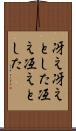 冴え冴え
とした冱
え冱えと
した